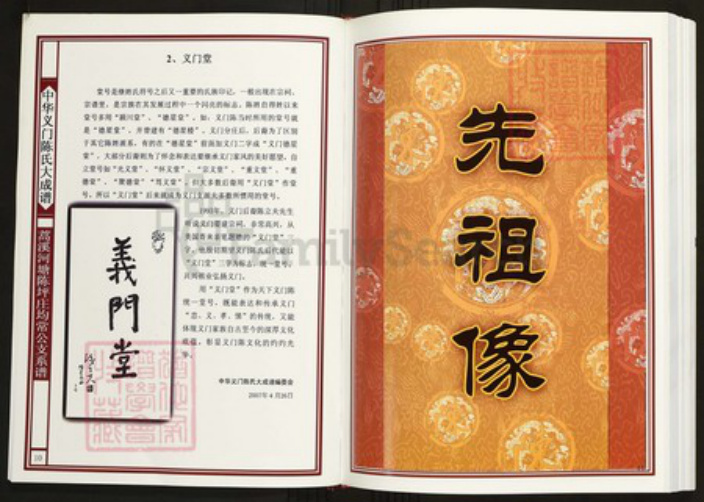 2、义门堂
堂号是继姓氏符号之后又一重要的氏族印记，一般出现在宗祠、
宗谱里，是宗族在其发展过程中一个闪光的标志。陈姓自得姓以来
堂号多用“颍川堂”、“德星堂”。如：义门陈当时所用的堂号就
是“德星堂”，并曾建有“德星楼”。义门分庄后，后裔为了区别
于其它陈姓派系，有的在“德星堂”前面加义门二字成“义门德星
堂”，大部分后裔则为了怀念和表达要继承义门家风的美好愿望，自
立堂号如“光义堂”、“怀义堂”、“宗义堂”、“重义堂”、“
德堂”、“聚德堂”“笃义堂”，但大多数后裔用“义门堂”作堂
号。所以“义门堂”后来就成为义门支派大多数所惯用的堂号。
1993年，义门后裔陈立夫先生
“义门堂”三字为标志，统一堂号，
用“义门堂”作为天下义门陈
统一堂号，既能表达和传承义门
“忠、义、孝、悌”的传统，又能
体现义门家族自古至今的深厚文化
底蕴，彰显义门陈文化的灼灼光
华。
中华义门陈氏大成谱编委会
2007年4月26日
義門堂
中华义门陈氏大成谱
荔溪河塘陈坪庄均常公支系谱
10
先祖像